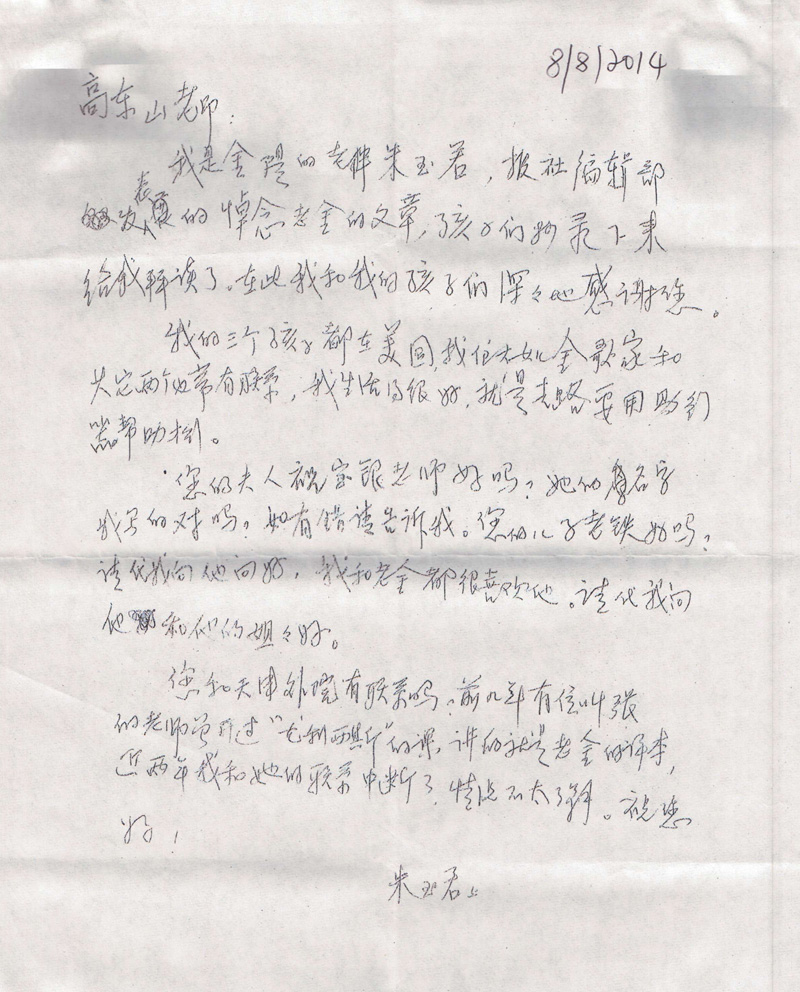 8/8/2014
高东山老师:
我是金隄的老伴朱玉若，报社编辑部
发表的悼念老金的文章，孩子们抄录下来
给我拜读了。在此我和我的孩子们深々地感谢您。
我的三个孩子都在美国，我住大女儿金歌家和
其它两个也常有联系，我生活得很好，就是走路要用助行
器帮助。
您的夫人祝宝银老师好吗？她的名字
我写的对吗？如有错请告诉我。您的儿子老铁好吗？
请代我向他问好，我和老金都很喜欢他。请代我问
他和他的姐々好。
您和天津外院有联系吗？前几年有位叫张
的老师曾开过“尤利西斯”的课，讲的就是老金的译本，
近两年我和她的联系中断了，情况不太了解。祝您
好！
朱玉若上